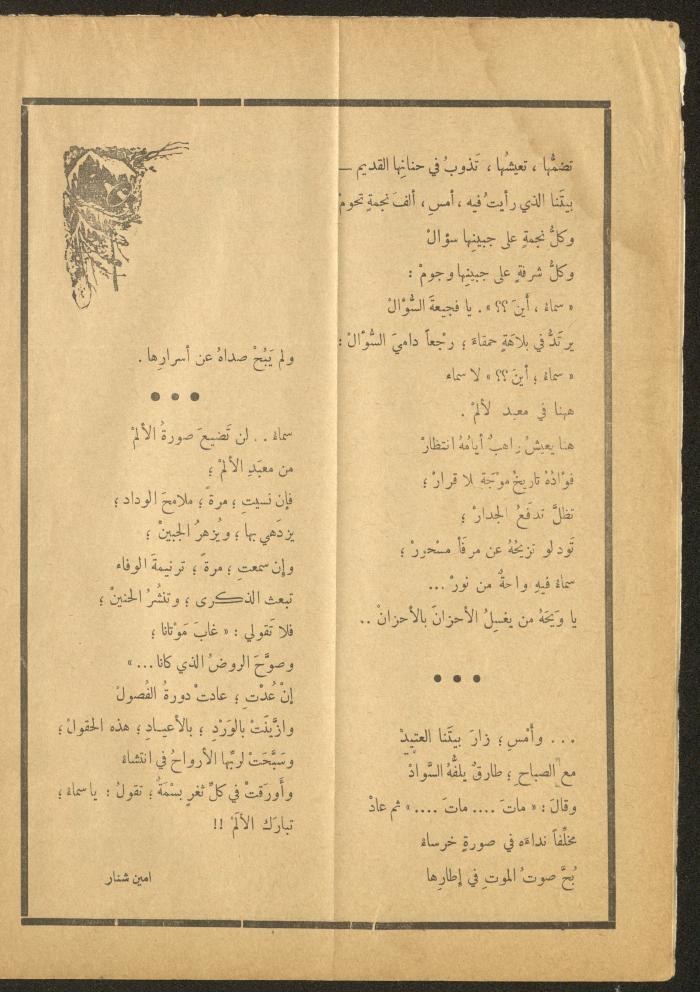 تضمُّها ، تعيشُها ، تَذوبُ في حنانِها القديم —
بيتَنا الذي رأيتُ فيه ، أمسِ ، ألفَ نجمةٍ تحومْ
وكلُّ نجمةٍ على جبينِها سؤالْ
وكلُّ شرفةٍ على جبينِها وجومْ :
« سماءُ ، أَينَ ؟؟ » . يا فجيعةَ السُّؤالْ
يرتدُّ في بلاهَةٍ حمقاءَ ؛ رجْعاً داميَ السُّؤالْ :
« سماءُ ؛ أينَ ؟؟ » لا سماء
ههنا في معبد لألمْ .
هنا يعيشُ راهبٌ أيامُهُ انتظارْ
فؤادُهُ تاريخُ موْجَةٍ بلا قرارْ ؛
تظلُّ تدفَعُ الجدارْ ؛
تَودلو تزيحُهُ عن مرفَأ مسْحورْ ؛
سماءُ فيهِ واحةٌ من نورْ ...
يا وَيحَهُ من يغسِلُ الأحزانَ بالأحزانْ ..
• • •
... وأَمْسِ ؛ زارَ بيتَنا العتيِدْ
مع الصباحِ ؛ طارقٌ يلفُّهُ السَّوادْ
وقالَ : « ماتَ .... ماتَ .... » ثم عادْ
مخلِّفاً نداءَه في صورةٍ خرساءْ
بُحَّ صوتُ الموتِ في إطارِها
ولم يَبُحْ صداهُ عن أسرارِها .
• • •
سماءُ .. لن تَضيعَ صورةُ الألمْ
من معبَدِ الألمْ ؛
فإن نسيتِ ؛ مرةً ؛ ملامحَ الوداد ؛
يزدَهي بها ؛ ويُزهرُ الجبينْ ؛
وإن سمعتِ ؛ مرةً ؛ ترنيمةَ الوفاء
تبعث الذكرى ؛ وتنشُرُ الحنينْ ؛
فلا تَقولي : « غابَ مَوْتانا ؛
وصوَّحَ الروضُ الذي كانا ... »
إنْ عُدْتِ ؛ عادتْ دورةُ الفُصولْ
وازَّينَتْ بالوَرْدِ ؛ بالأعيادِ ؛ هذه الحقولْ ؛
وسَبَّحَتْ لربِّها الأرواحُ في انتشاء
وأَورَقتْ في كلِّ ثغرٍ بسْمَةٌ ؛ تقولُ : يا سماءُ ؛
تبارَك الألَمْ !!
امين شنار